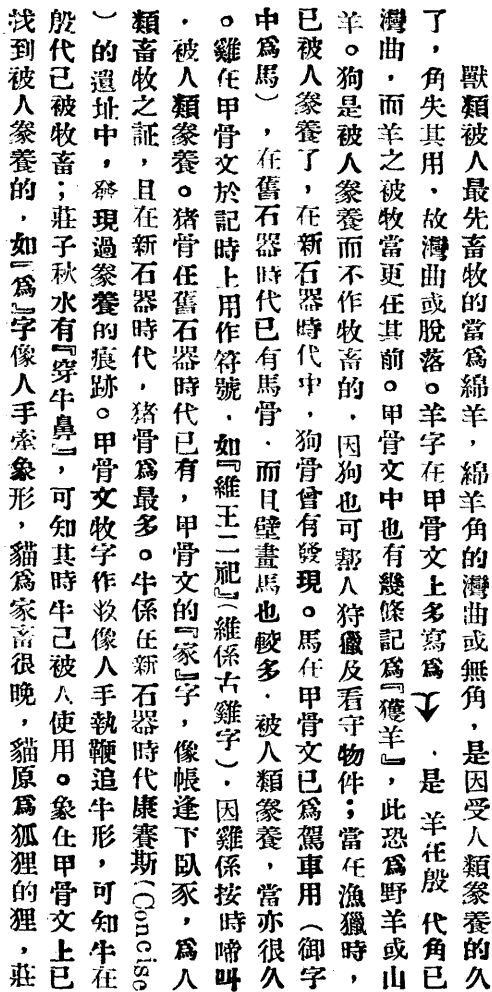 獸類被人最先畜牧的當爲綿羊，綿羊角的灣曲或無角，是因受人類豢養的久
了，角失其用、故灣曲或脫落。羊字在甲骨文上多寫爲 ，是 羊在殷 代角已
灣曲，而羊之被牧當更在其前。甲骨文中也有幾條記爲『獲羊』，此恐爲野羊或山
羊。狗是被人豢養而不作牧畜的，因狗也可幫人狩獵及看守物件；當在漁獵時，
已被人豢養了，在新石器時代中，狗骨曾有發現。馬在甲骨文已爲駕車用（御字
中爲馬），在舊石器時代已有馬骨．而且壁畫馬也較多．被人類豢養，當亦很久
。雞在甲骨文於記時上用作符號．如『維王二祀』（維係古雞字）．因雞係按時啼叫
．被人類豢養。猪骨在舊石器時代已有，甲骨文的『家』字，像帳逢下臥豕，爲人
類畜牧之証，且在新石器時代，猪骨爲最多。牛係在新石器時代康賽斯（Concise
）的遺址中，發現過豢養的痕跡。甲骨文牧字作 像人手執鞭追牛形，可知牛在
殷代已被牧畜；莊子秋水有『穿牛鼻』，可知其時牛已被人使用。象在甲骨文上已
找到被人豢養的．如『爲』字像人手牽象形，貓爲家畜很晚，貓原爲狐狸的狸，莊